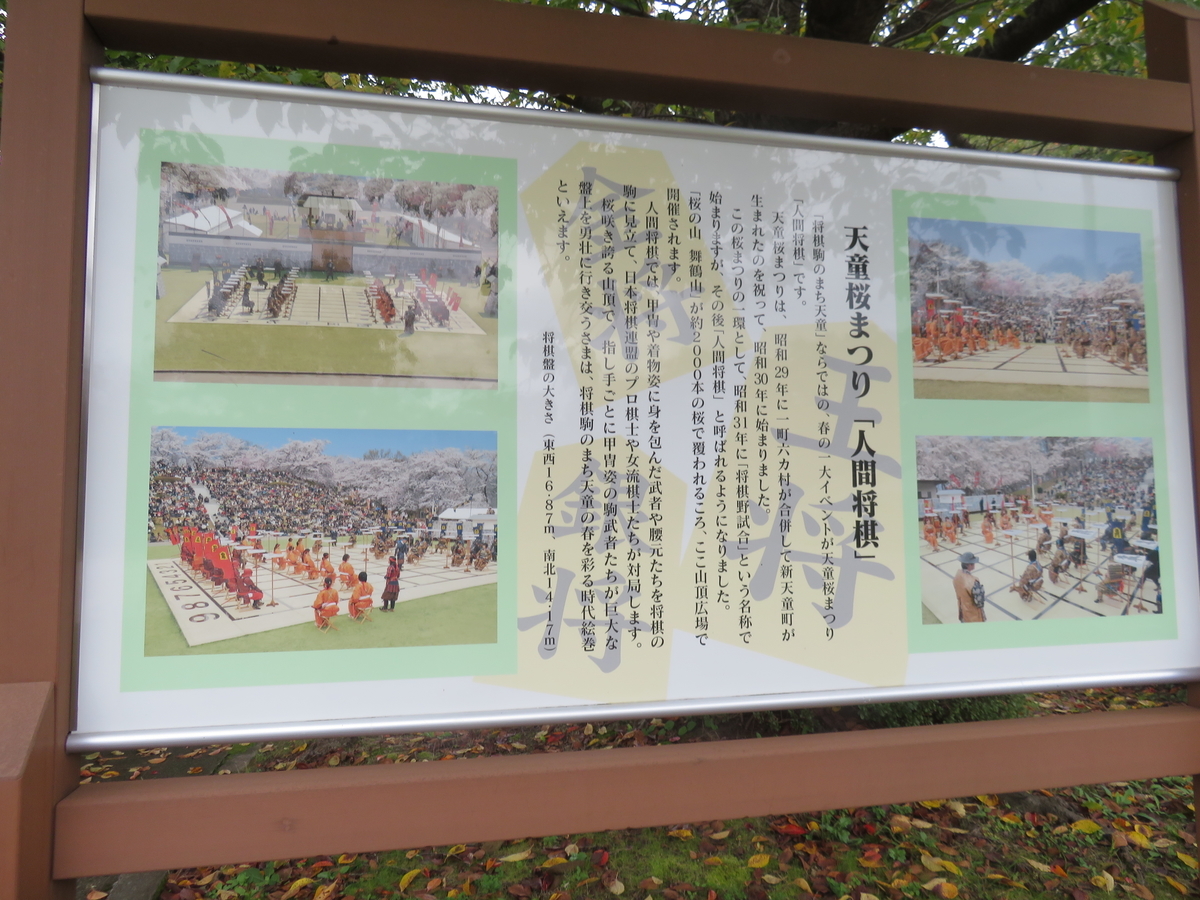 天童桜まつり「人間将棋」
「将棋駒のまち天童」ならではの、春の一大イベントが天童桜まつり
「人間将棋」です。
天童桜まつりは、昭和29年に一町六カ村が合併して新天童町が
生まれたのを祝って、昭和30年に始まりました。
この桜まつりの一環として、昭和31年に「将棋野試合」という名称で
始まりますが、その後「人間将棋」と呼ばれるようになりました。
「桜の山 舞鶴山」が約2000本の桜で覆われるころ、ここ山頂広場で
開催されます。
人間将棋では、甲冑や着物姿に身を包んだ武者や腰元たちを将棋の
駒に見立て、日本将棋連盟のプロ棋士や女流棋士たちが対局します。
桜咲き誇る山頂で、一指し手ごとに甲冑姿の駒武者たちが巨大な
盤上を勇壮に行き交うさまは、将棋駒のまち天童の春を彩る時代絵巻
といえます。
将棋盤の大きさ(東西16.87m、南北14.17m)
王将
金将
銀将